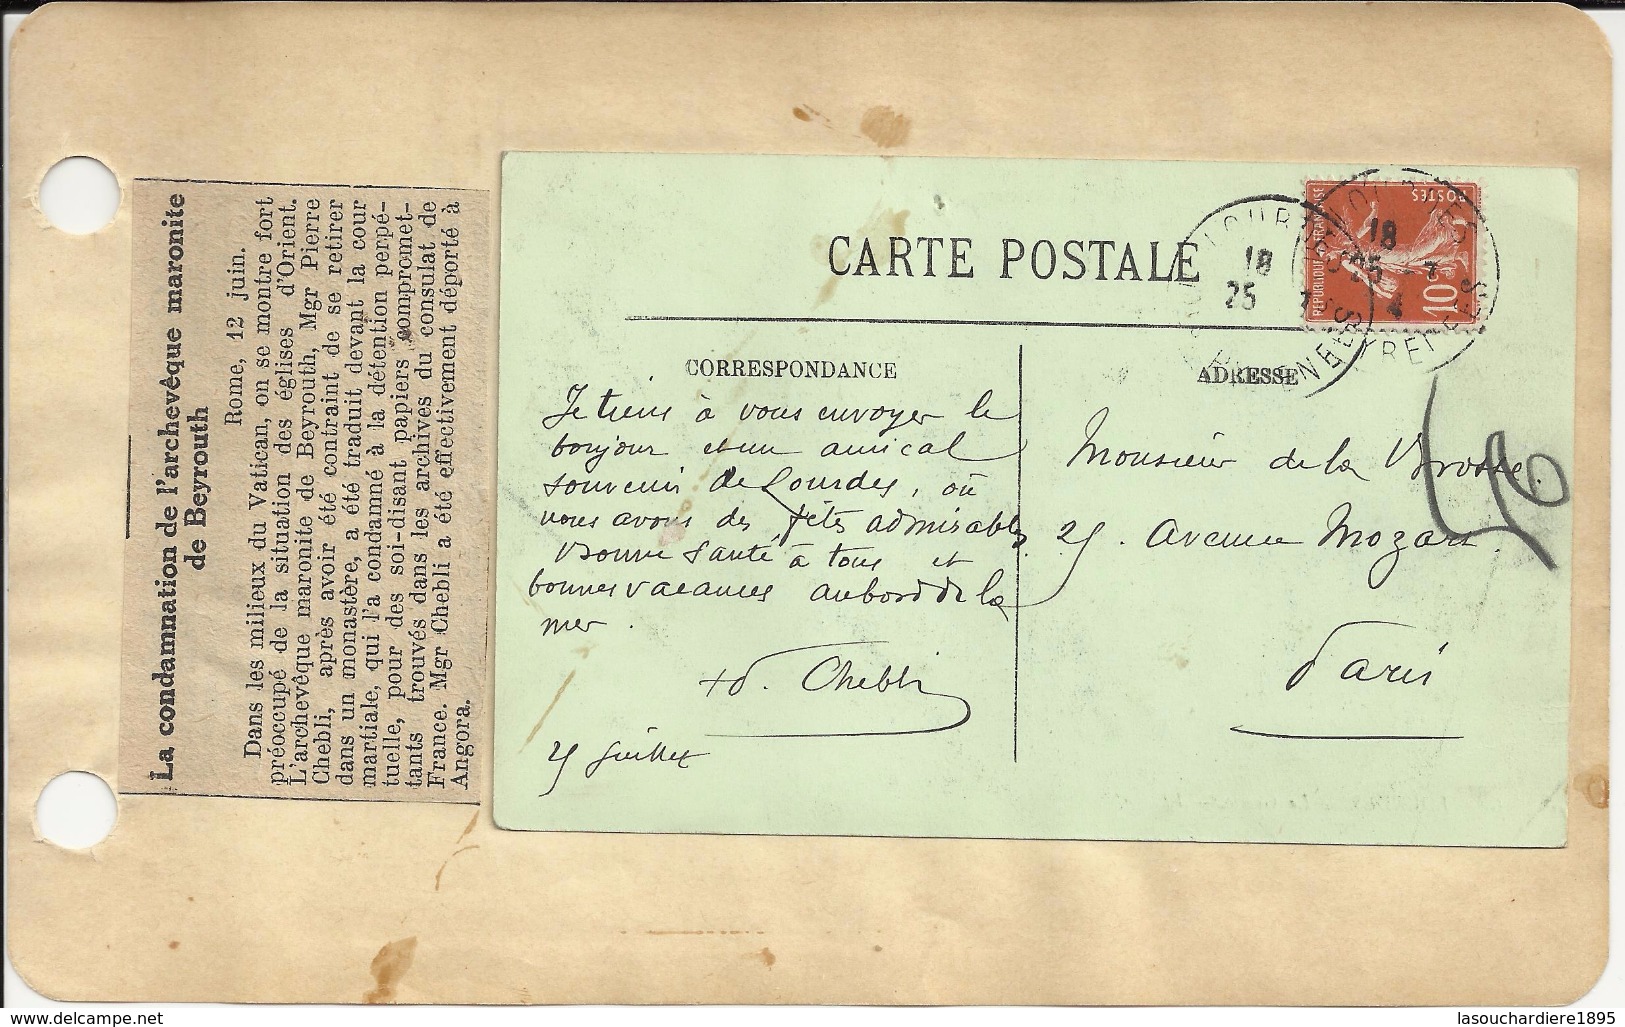 La condamnation de l'archevêque maronite
de Beyrouth
Rome, 12 juin.
Dans les milieux du Vatican, on se montre fort
préoccupé de la situation des églises d'Orient.
L'archevêque maronite de Beyrouth, Mgr Pierre
Chebli, après avoir été contraint de se retirer
dans un monastère, a été traduit devant la cour
martiale, qui l'a condamné à la détention perpé-
tuelle, pour des soi-disant papiers compromet-
tants trouvés dans les archives du consulat de
France. Mgr Chebli a été effectivement déporté à
Angora.
CARTE POSTALE
CORRESPONDANCE
Je tiens à vous envoyer le
bonjour et un amical
souvenir de Lourdes, où
nous avons des fêtes admirables.
Bonne santé à tous et
bonnes vacances au bord de la
mer.
+ P. Chebli
25 Juillet
ADRESSE
Monsieur de la Brosse.
25. Avenue Mozart.
Paris
REPUBLIQUE FRANÇAISE
POSTES
10c
18
25 - 7
LOURDES
18
25 7
www.delcampe.net
lasouchardiere1895